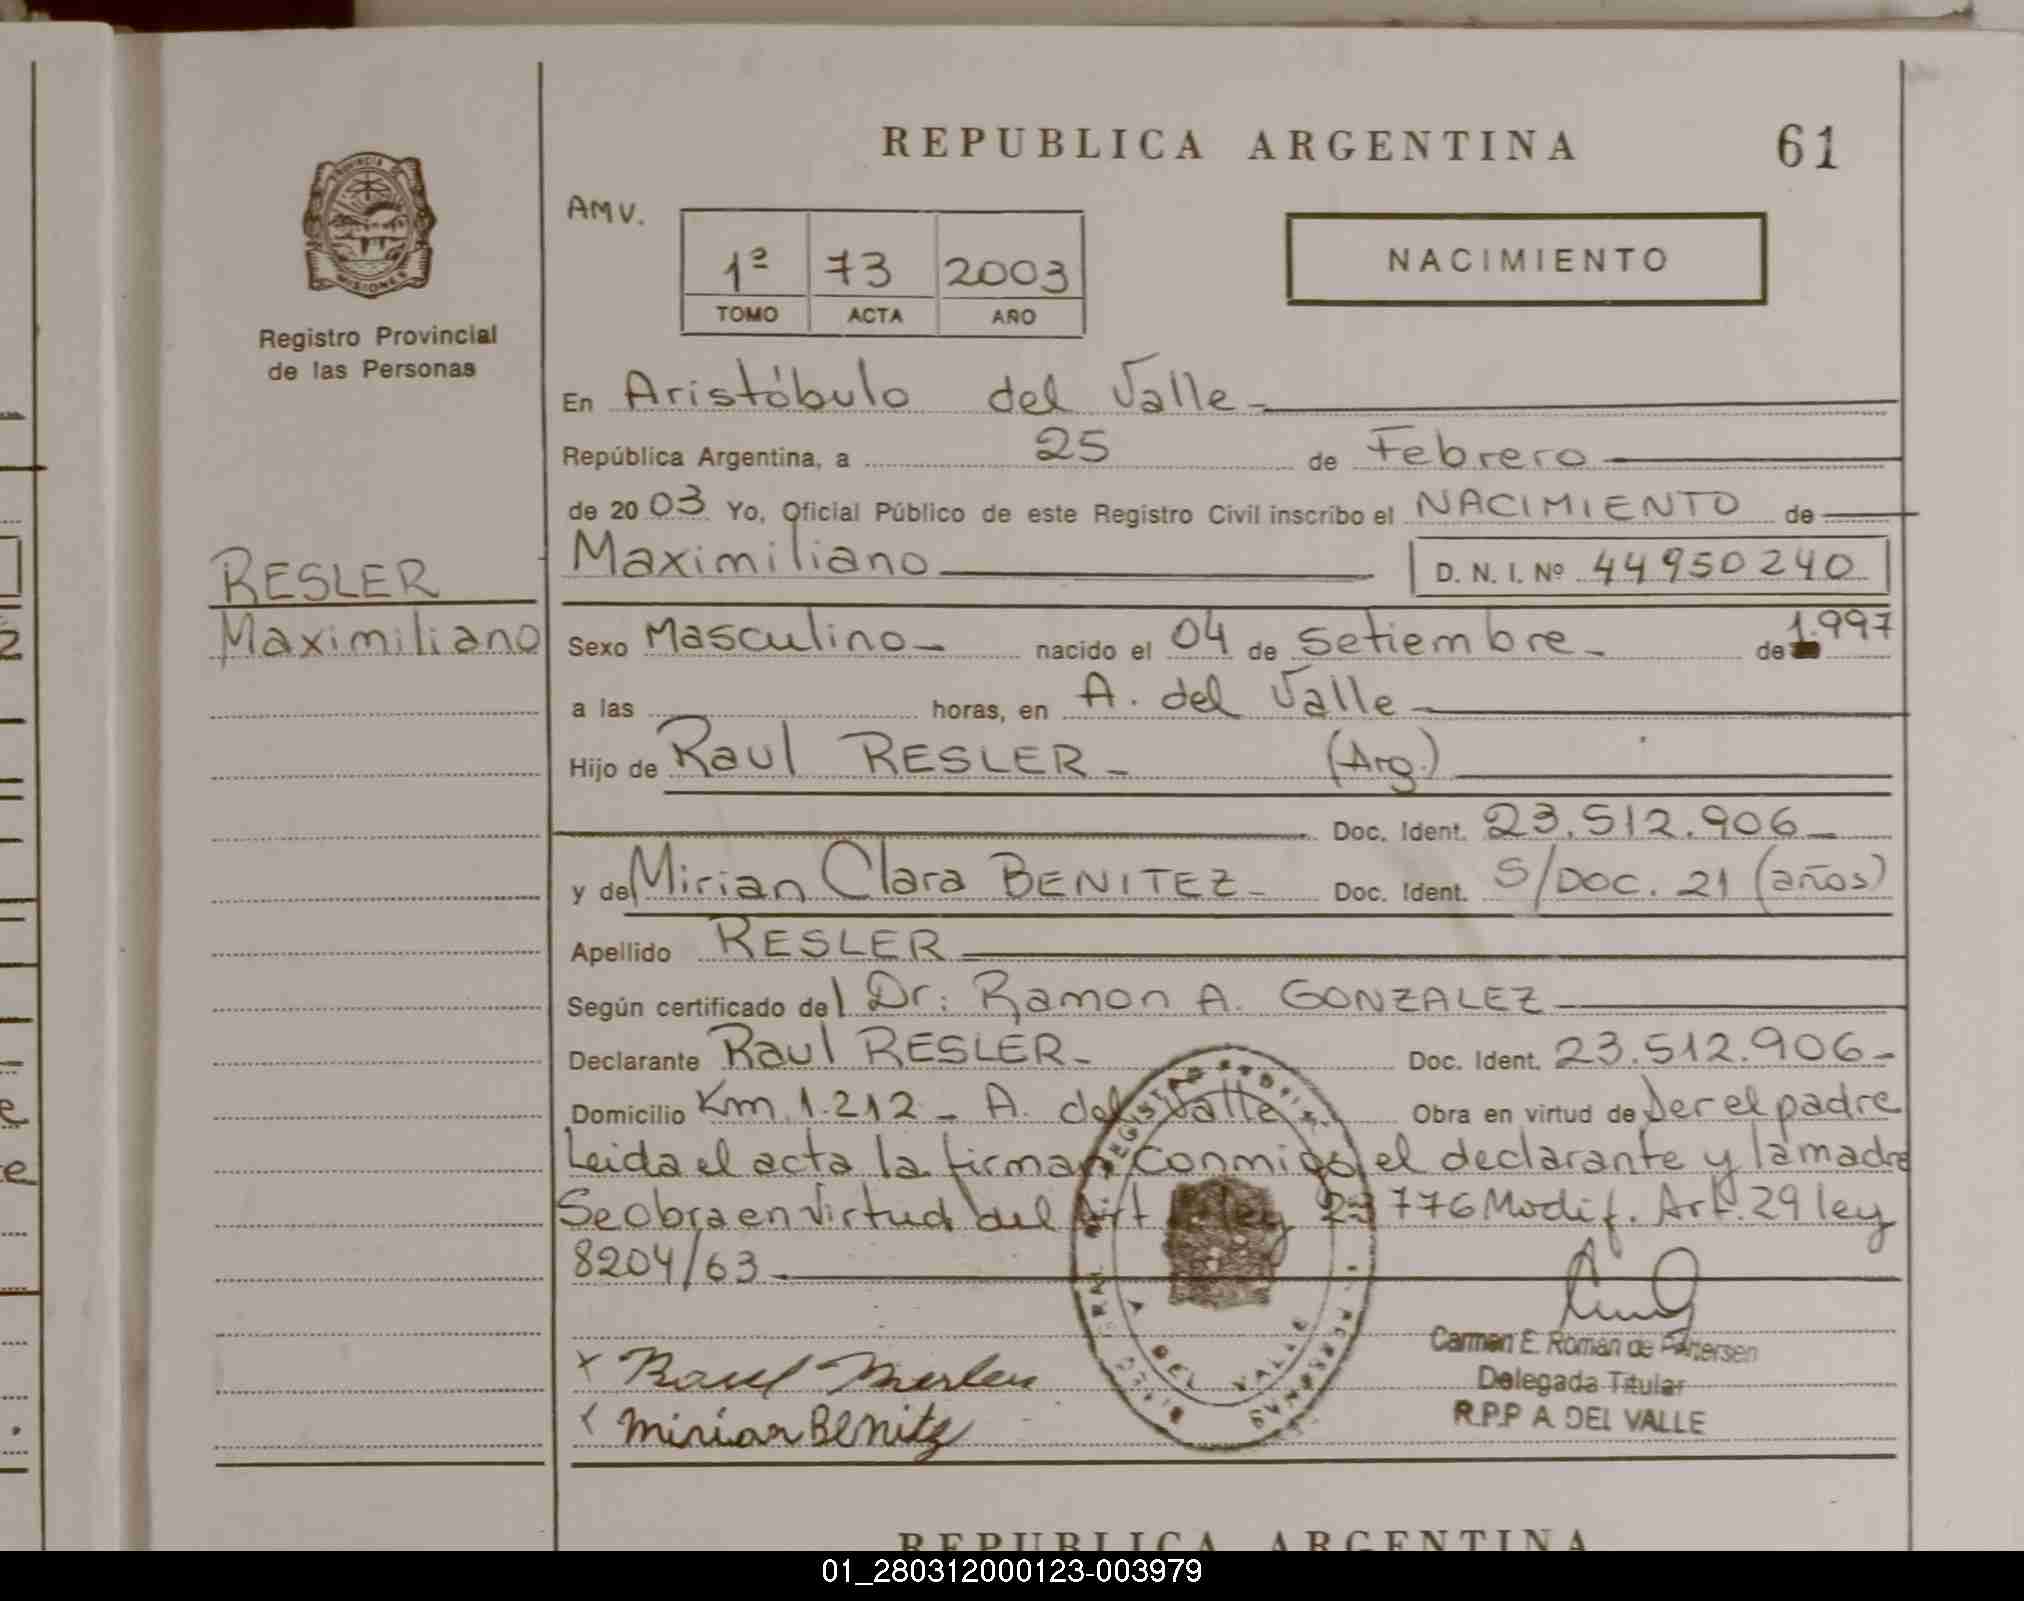 REPUBLICA ARGENTINA
61
PROVINCIA
MISIONES
Registro Provincial
de las Personas
AMV.
1ª 73 2003
TOMO ACTA AÑO
NACIMIENTO
En Aristóbulo del Valle
República Argentina, a 25 de Febrero
de 2003 Yo, Oficial Público de este Registro Civil inscribo el NACIMIENTO de
Maximiliano D. N. I. Nº 44950240
RESLER
Maximiliano
Sexo Masculino nacido el 04 de Setiembre de 1.997
a las horas, en A. del Valle
Hijo de Raul RESLER (Arg.)
Doc. Ident. 23.512.906
y de Mirian Clara BENITEZ Doc. Ident. S/DOC. 21 (años)
Apellido RESLER
Según certificado del Dr: Ramon A. GONZALEZ
Declarante Raul RESLER Doc. Ident. 23.512.906
Domicilio Km 1.212 - A. del Valle Obra en virtud de Ser el padre
Leida el acta la firman conmigo el declarante y la madre
Se obra en virtud del Art ley 776 Modif. Art. 29 ley
8204/63
x Raul
Mirian Benitz
Carmen E. Roman de
Delegada Titular
R.P.P A. DEL VALLE
DEL VALLE
REPUBLICA ARGENTINA
01_280312000123-003979